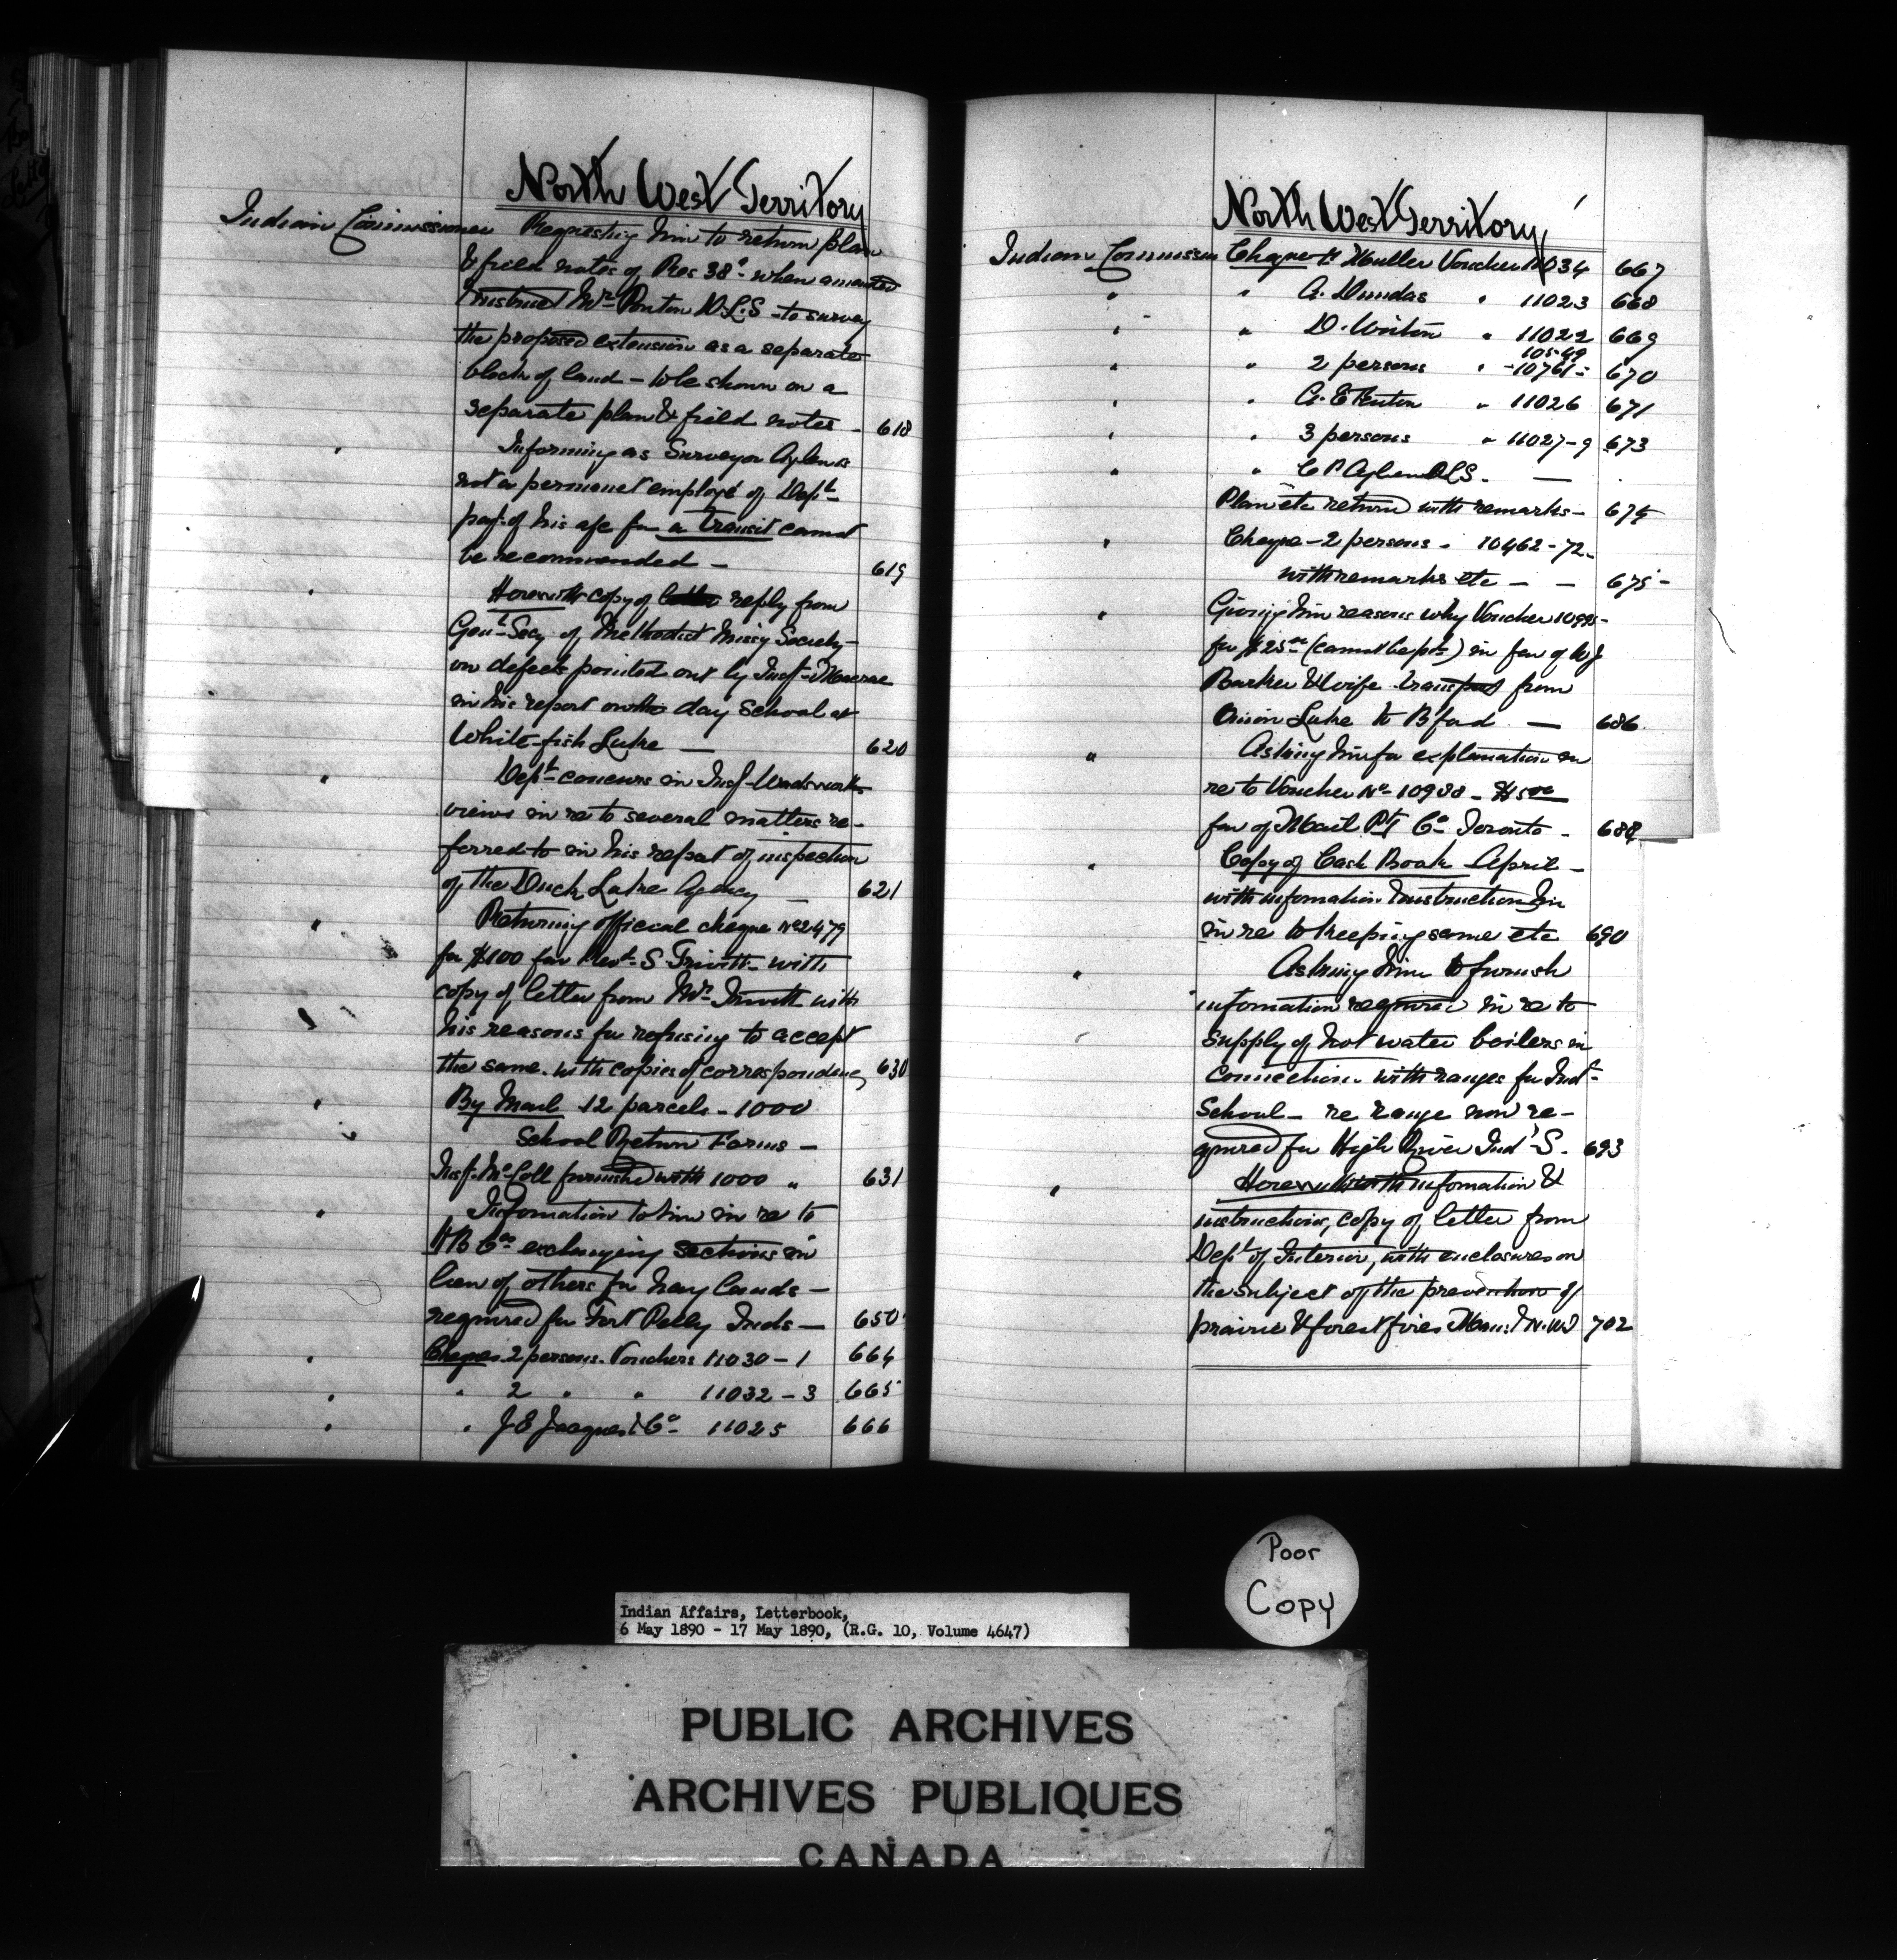 North West Territory
Indian Commissioner Requesting him to return plan
& field notes of Res 38ª when amended
Instruct Mr Ponton D.L.S - to survey
the proposed extension as a separate
block of land - to be shown on a
separate plan & field notes - 618
" Informing as Surveyor Aylen is
not a permanent employé of Dept
payt of his a/c for a transit cannot
be recommended - 619
" Herewith copy of reply from
Genl Secy of Methodist Missy Society -
on defects pointed out by Insp. Macrae
in his report on the day School at
White-fish Lake - 620
" Dept concurs in Insp Wadsworths
views in re to several matters re-
ferred to in his report of inspection
of the Duck Lake Agency - 621
" Returning official cheque No 2479
for $100 fav Revd S. Trivett - with
copy of letter from Mr Trivett with
his reasons for refusing to accept
the same. with copies of correspondence 630
" By Mail 12 parcels - 1000
School Return Forms -
Insp. McColl furnished with 1000 " 631
" Information to him in re to
HB Co exchanging sections in
lieu of others for hay lands -
required for Fort Pelly Inds - 650
" Cheques 2 persons. Vouchers 11030 - 1 664
" " 2 " " 11032 - 3 665
" " J E Jacques & Co 11025 666
North West Territory
Indian Commissioner Cheque H Muller Voucher 11034 667
" " A. Dundas " 11023 668
" " D. " 11022 669
10549
" " 2 persons " -10761- 670
" " A. E " 11026 671
" " 3 persons " 11027-9 673
" " C P Aylen DLS. -
Plan etc return with remarks - 674
" Cheque - 2 persons - 10462-72-
with remarks etc - - 675
" Giving him reasons why Voucher
for $25 (cannot be pd) in fav of WJ
Barker & wife transport from
Onion Lake to Bford - 686
" Asking him for explanation in
re to Voucher No 10938 -
fav of Mail Co Toronto - 688
" Copy of Cash Book April -
with information & instruction
in re to keeping same etc 690
" Asking him to furnish
information required in re to
supply of hot water boilers in
connection with ranges for Indl
School - re range now re-
quired for High River Indl S. 693
" Herewith with information &
instructions, copy of letter from
Dept of Interior, with enclosures on
the subject of the prevention of
prairie & forest fires Man: & N.W.T 702
Poor
Copy
Indian Affairs, Letterbook,
6 May 1890 - 17 May 1890, (R.G. 10, Volume 4647)
PUBLIC ARCHIVES
ARCHIVES PUBLIQUES
CANADA